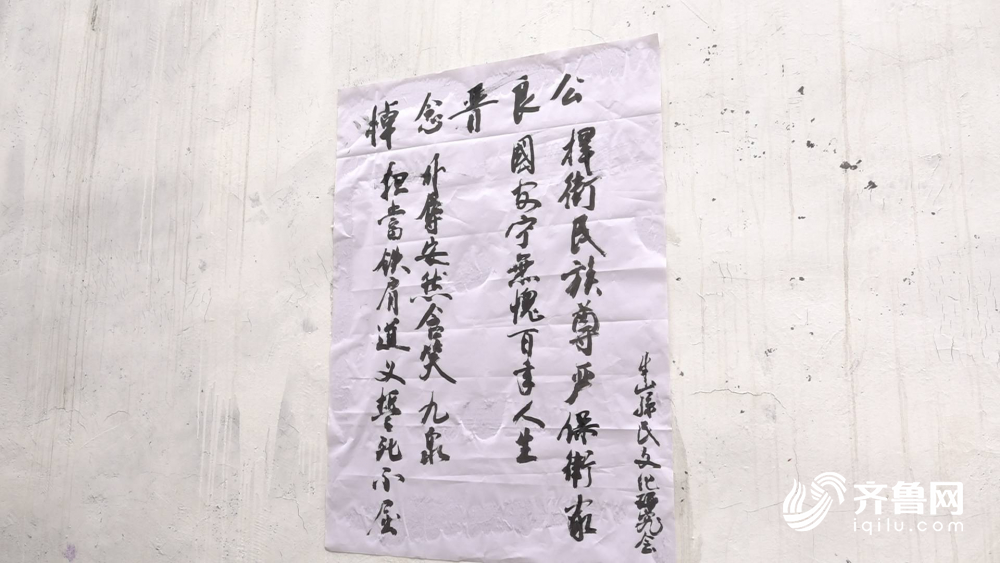 悼念晋良公
捍衛民族尊严保衛家
國安宁無愧百年人生
担當铁肩道义誓死不屈
外辱安然含笑九泉
牛山孫氏文化研究会
齐鲁网
iqilu.com